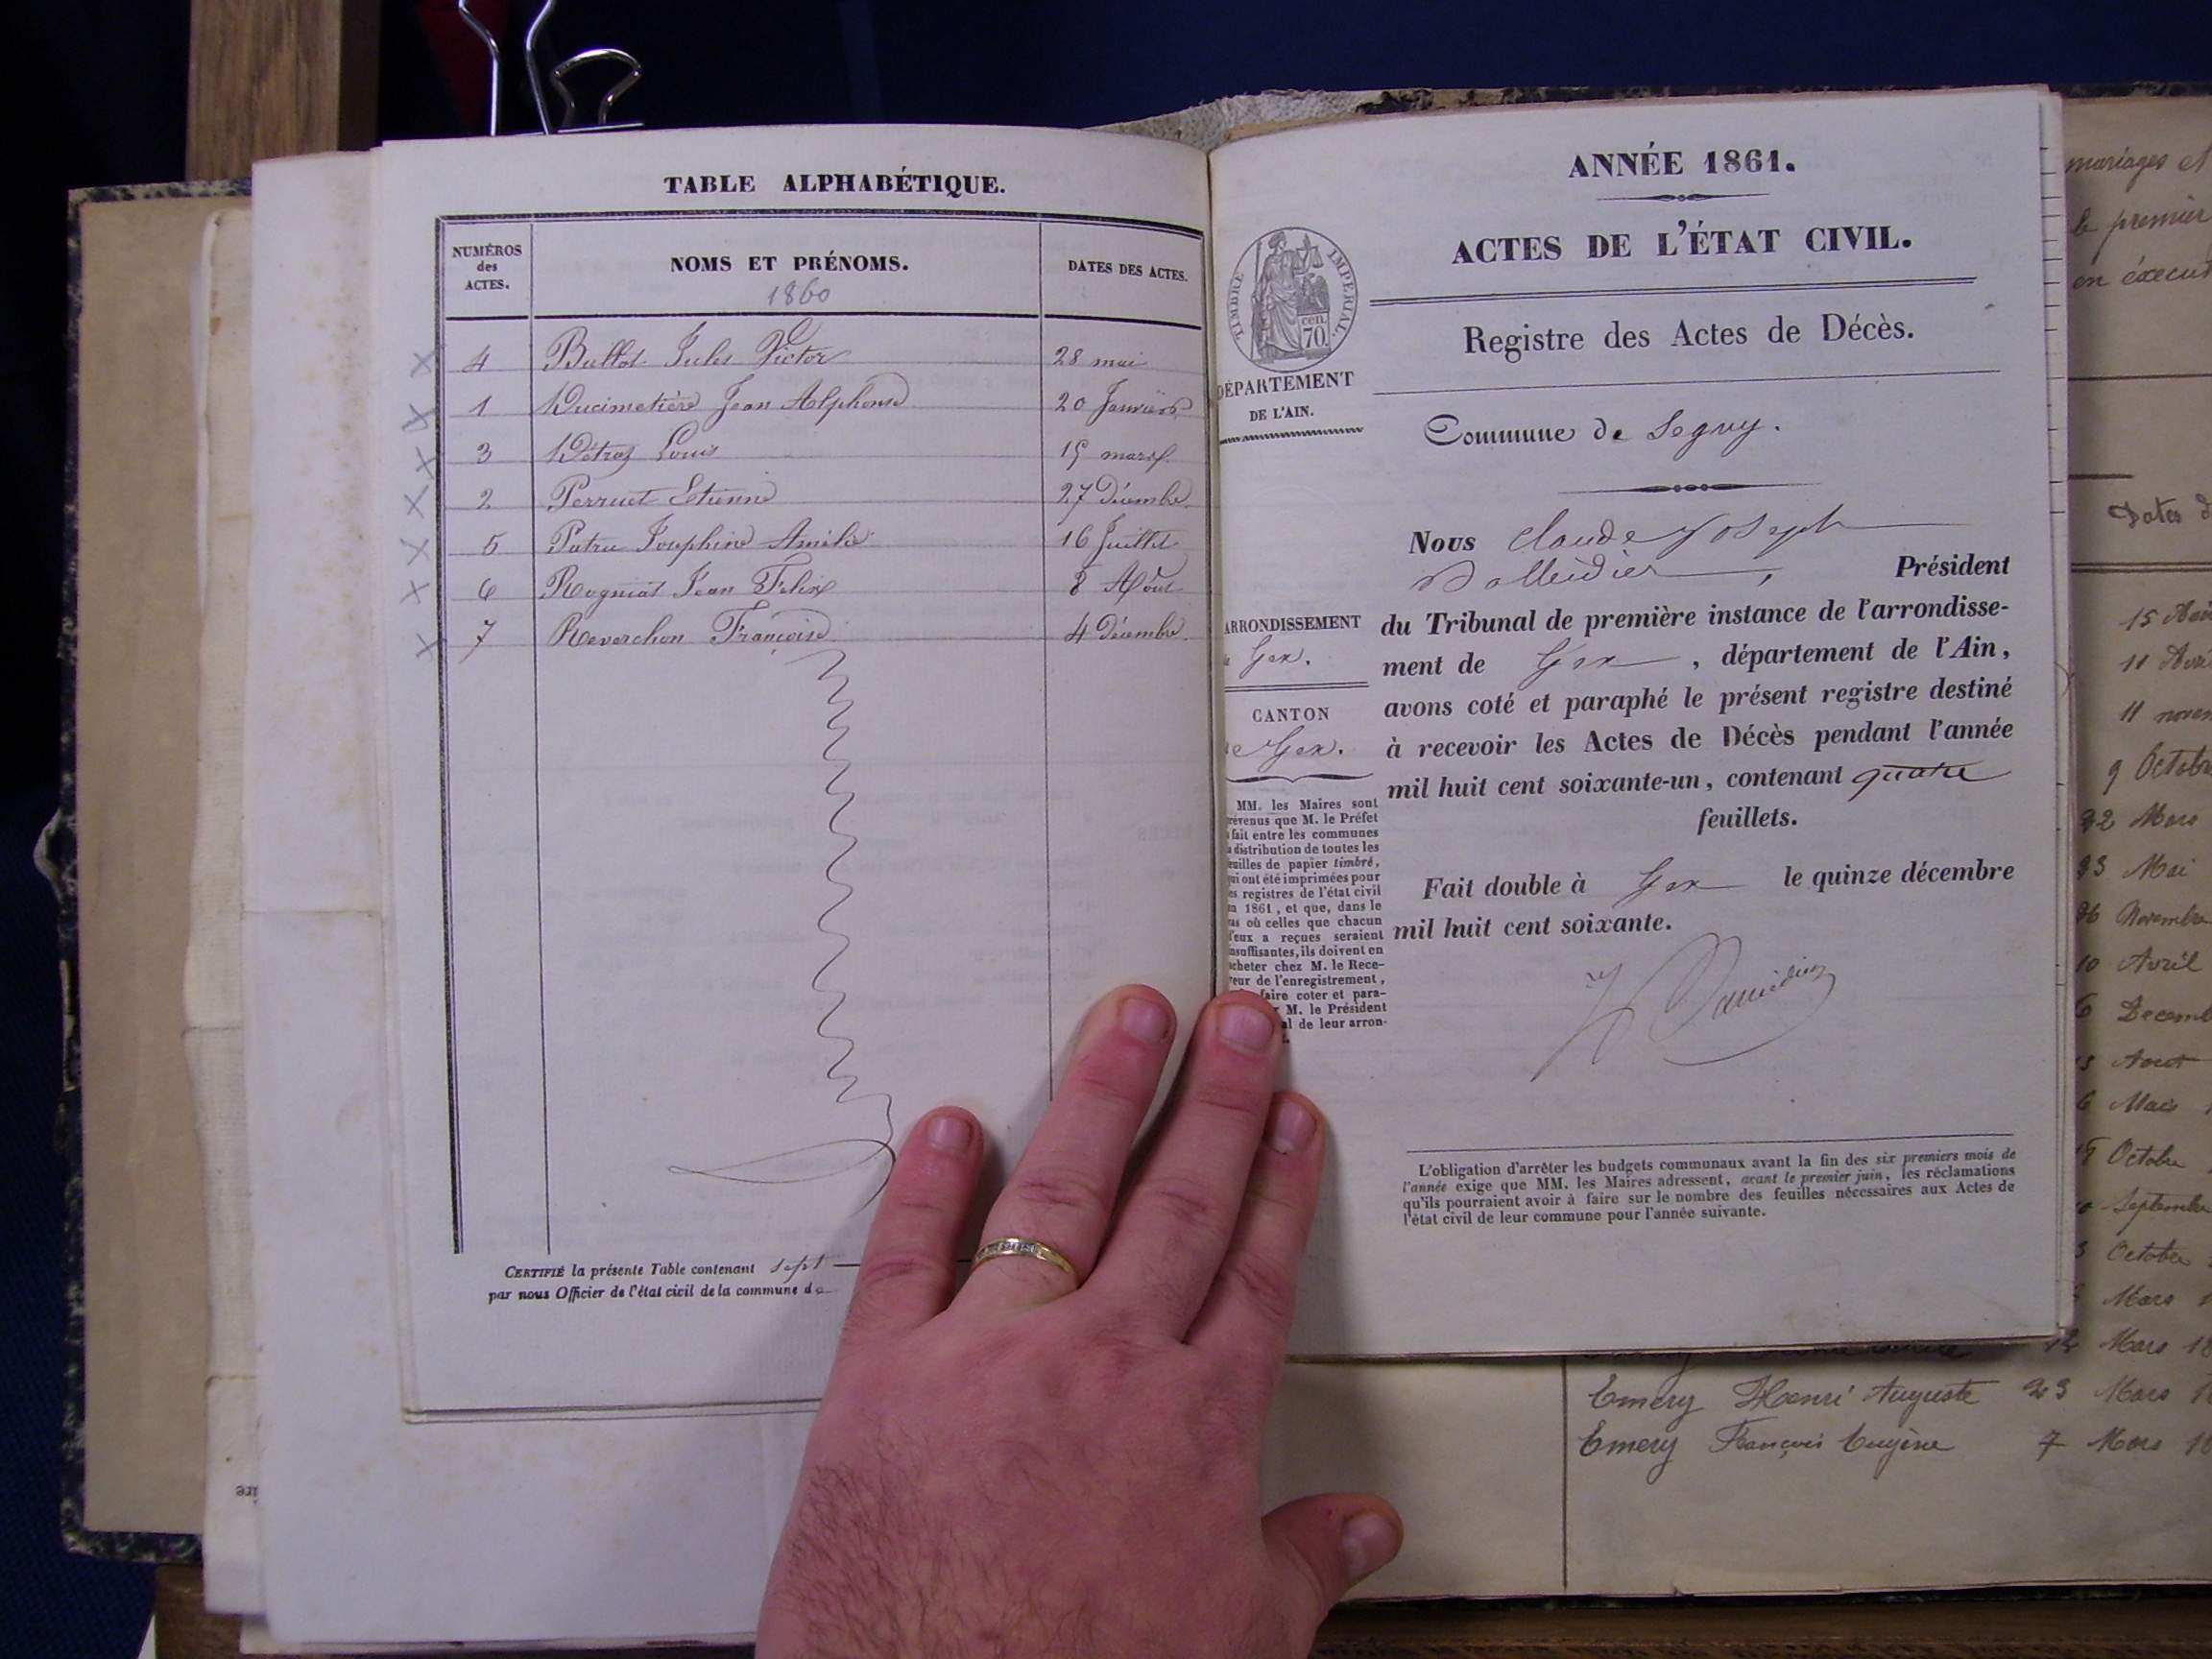 TABLE ALPHABÉTIQUE.
NUMÉROS
des
ACTES.
NOMS ET PRÉNOMS.
1860
DATES DES ACTES.
4 Bullot Jules Victor 28 mai
1 Ducimetière Jean Alphonse 20 Janvier
3 Détraz Louis 15 mars
2 Perruet Etienne 27 Décembre
5 Patru Josephine Amélie 16 Juillet
6 Rogniat Jean Felix 8 Août
7 Reverchon Françoise 4 Décembre
CERTIFIÉ la présente Table contenant sept
par nous Officier de l'état civil de la commune de
ANNÉE 1861.
ACTES DE L'ÉTAT CIVIL.
Registre des Actes de Décès.
TIMBRE IMPÉRIAL.
cen.
70
DÉPARTEMENT
DE L'AIN.
Commune de Segny.
ARRONDISSEMENT
Gex.
CANTON
de Gex.
Nous Claude Joseph
Président
du Tribunal de première instance de l'arrondisse-
ment de Gex, département de l'Ain,
avons coté et paraphé le présent registre destiné
à recevoir les Actes de Décès pendant l'année
mil huit cent soixante-un, contenant quatre
feuillets.
Fait double à Gex le quinze décembre
mil huit cent soixante.
MM. les Maires sont
révenus que M. le Préfet
fait entre les communes
a distribution de toutes les
euilles de papier timbré,
ui ont été imprimées pour
es registres de l'état civil
n 1861, et que, dans le
as où celles que chacun
d'eux a reçues seraient
nsuffisantes, ils doivent en
cheter chez M. le Rece-
veur de l'enregistrement,
faire coter et para-
M. le Président
al de leur arron-
L'obligation d'arrêter les budgets communaux avant la fin des six premiers mois de
l'année exige que MM. les Maires adressent, avant le premier juin, les réclamations
qu'ils pourraient avoir à faire sur le nombre des feuilles nécessaires aux Actes de
l'état civil de leur commune pour l'année suivante.
mariages et
le premier
en éxecut
Dates d
15
11 Avri
11 novem
9 Octobre
22 Mars
23 Mai
26 Novembre
10 Avril
6 Decemb
Aout
6 Mais
Octobre
Septembre
Octobre
Mars
12 Mars 18
Emery Henri Auguste 23 Mars 1
Emery François Eugène 7 Mars 18